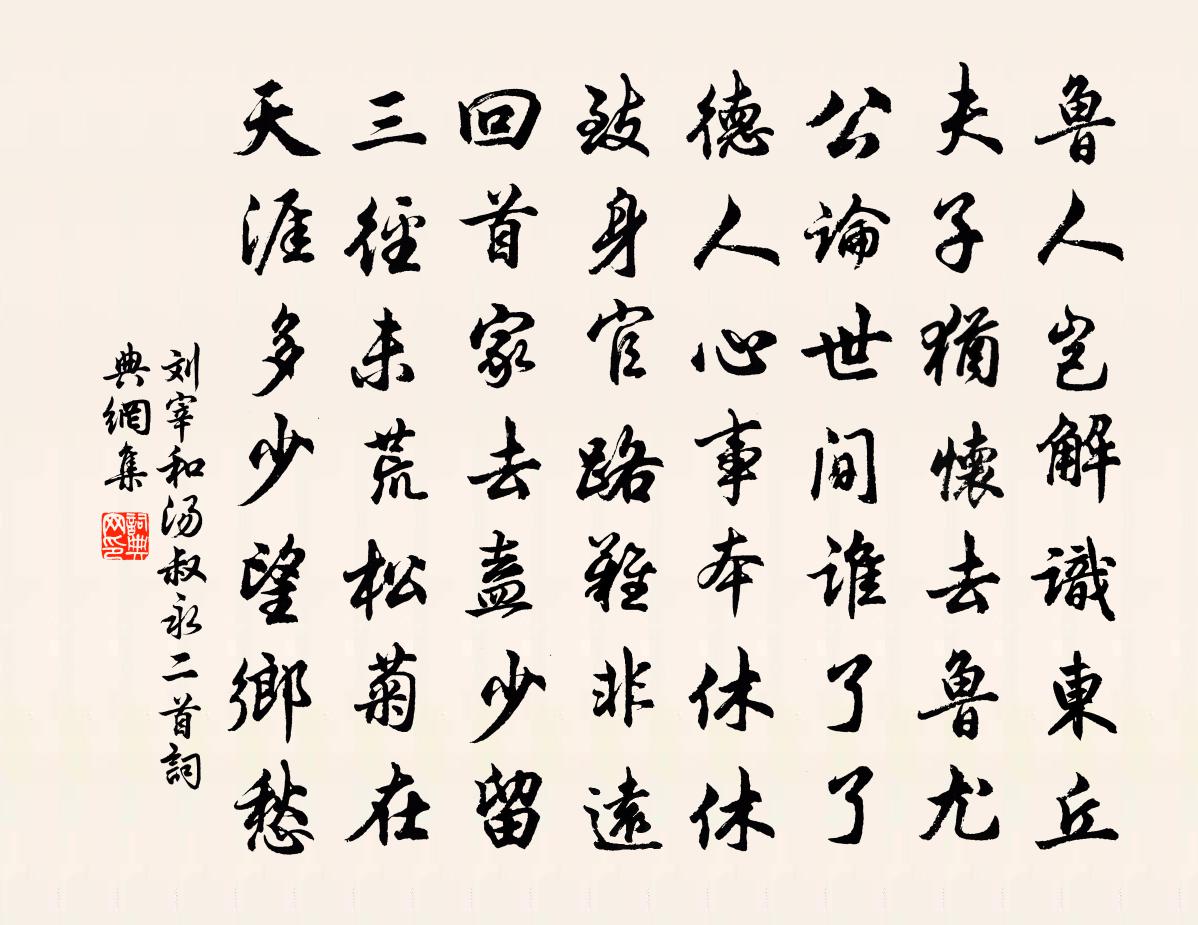 魯人豈解識東丘
夫子猶懷去魯尤
公論世間誰了了
德人心事本休休
致身官路難非遠
回首家去盍少留
三徑未荒松菊在
天涯多少望鄉愁
刘宰和汤叔永二首詞
典網集
詞典
网印